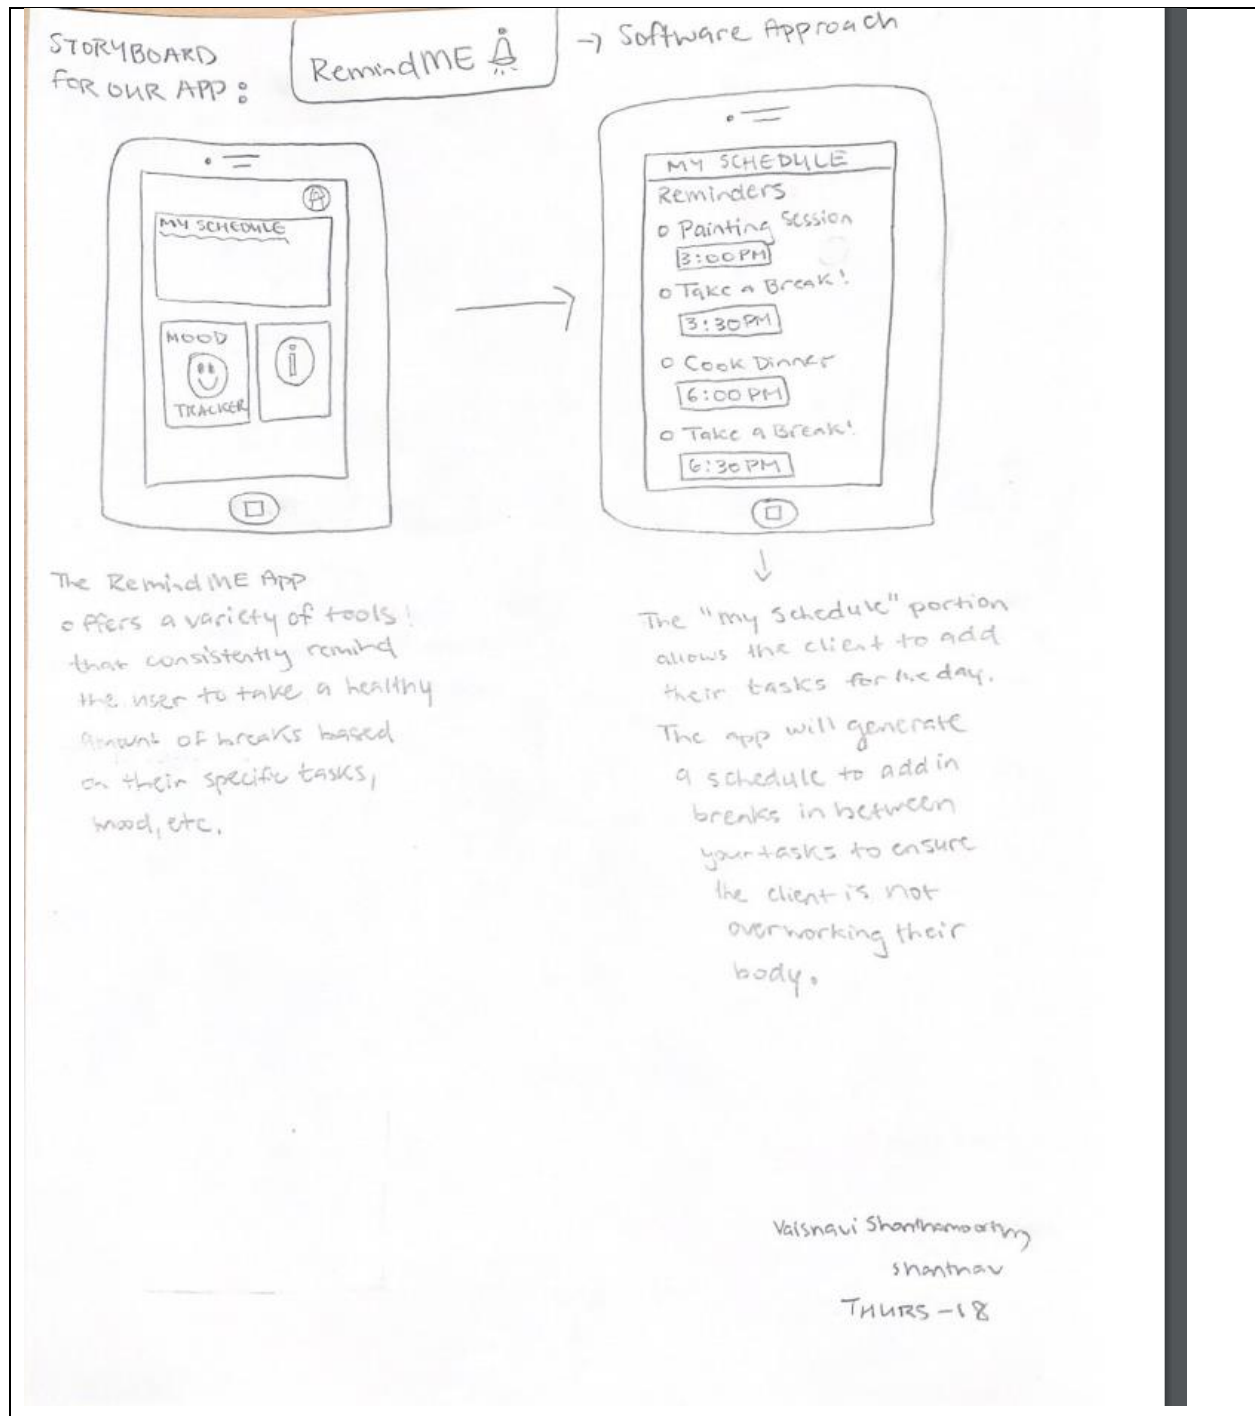 STORYBOARD
FOR OUR APP:
RemindME
→ Software Approach
MY SCHEDULE
MOOD
TRACKER
i
MY SCHEDULE
Reminders
o Painting Session
3:00PM
o Take a Break!
3:30PM
o Cook Dinner
6:00 PM
o Take a Break!
6:30 PM
The RemindME App
offers a variety of tools!
that consistently remind
the user to take a healthy
amount of breaks based
on their specific tasks,
mood, etc.
The "my schedule" portion
allows the client to add
their tasks for the day.
The app will generate
a schedule to add in
breaks in between
your tasks to ensure
the client is not
overworking their
body.
Vaisnavi Shanthamoorthy
shanthav
THURS-18